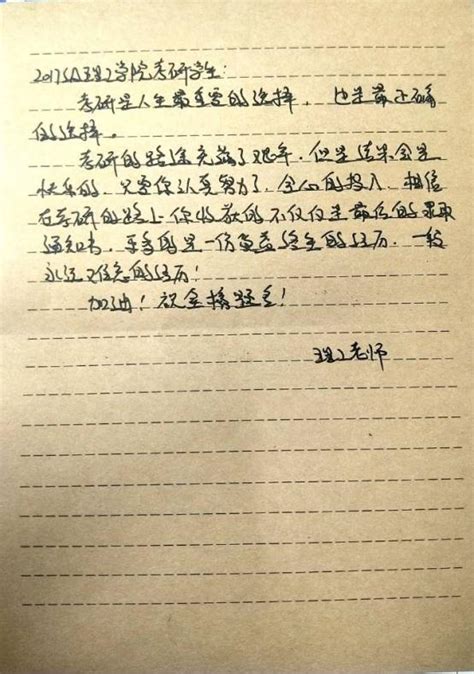 2017级理工学院考研学生:
考研是人生最重要的选择，也是最正确
的选择。
考研的路途充满了艰辛，但是结果会是
快乐的，只要你认真努力了，全心的投入，相信
在考研的路上你收获的不仅仅是最后的录取
通知书，更多的是一份受益终生的经历，一段
永远难忘的经历！
加油！祝金榜题名！
理工老师